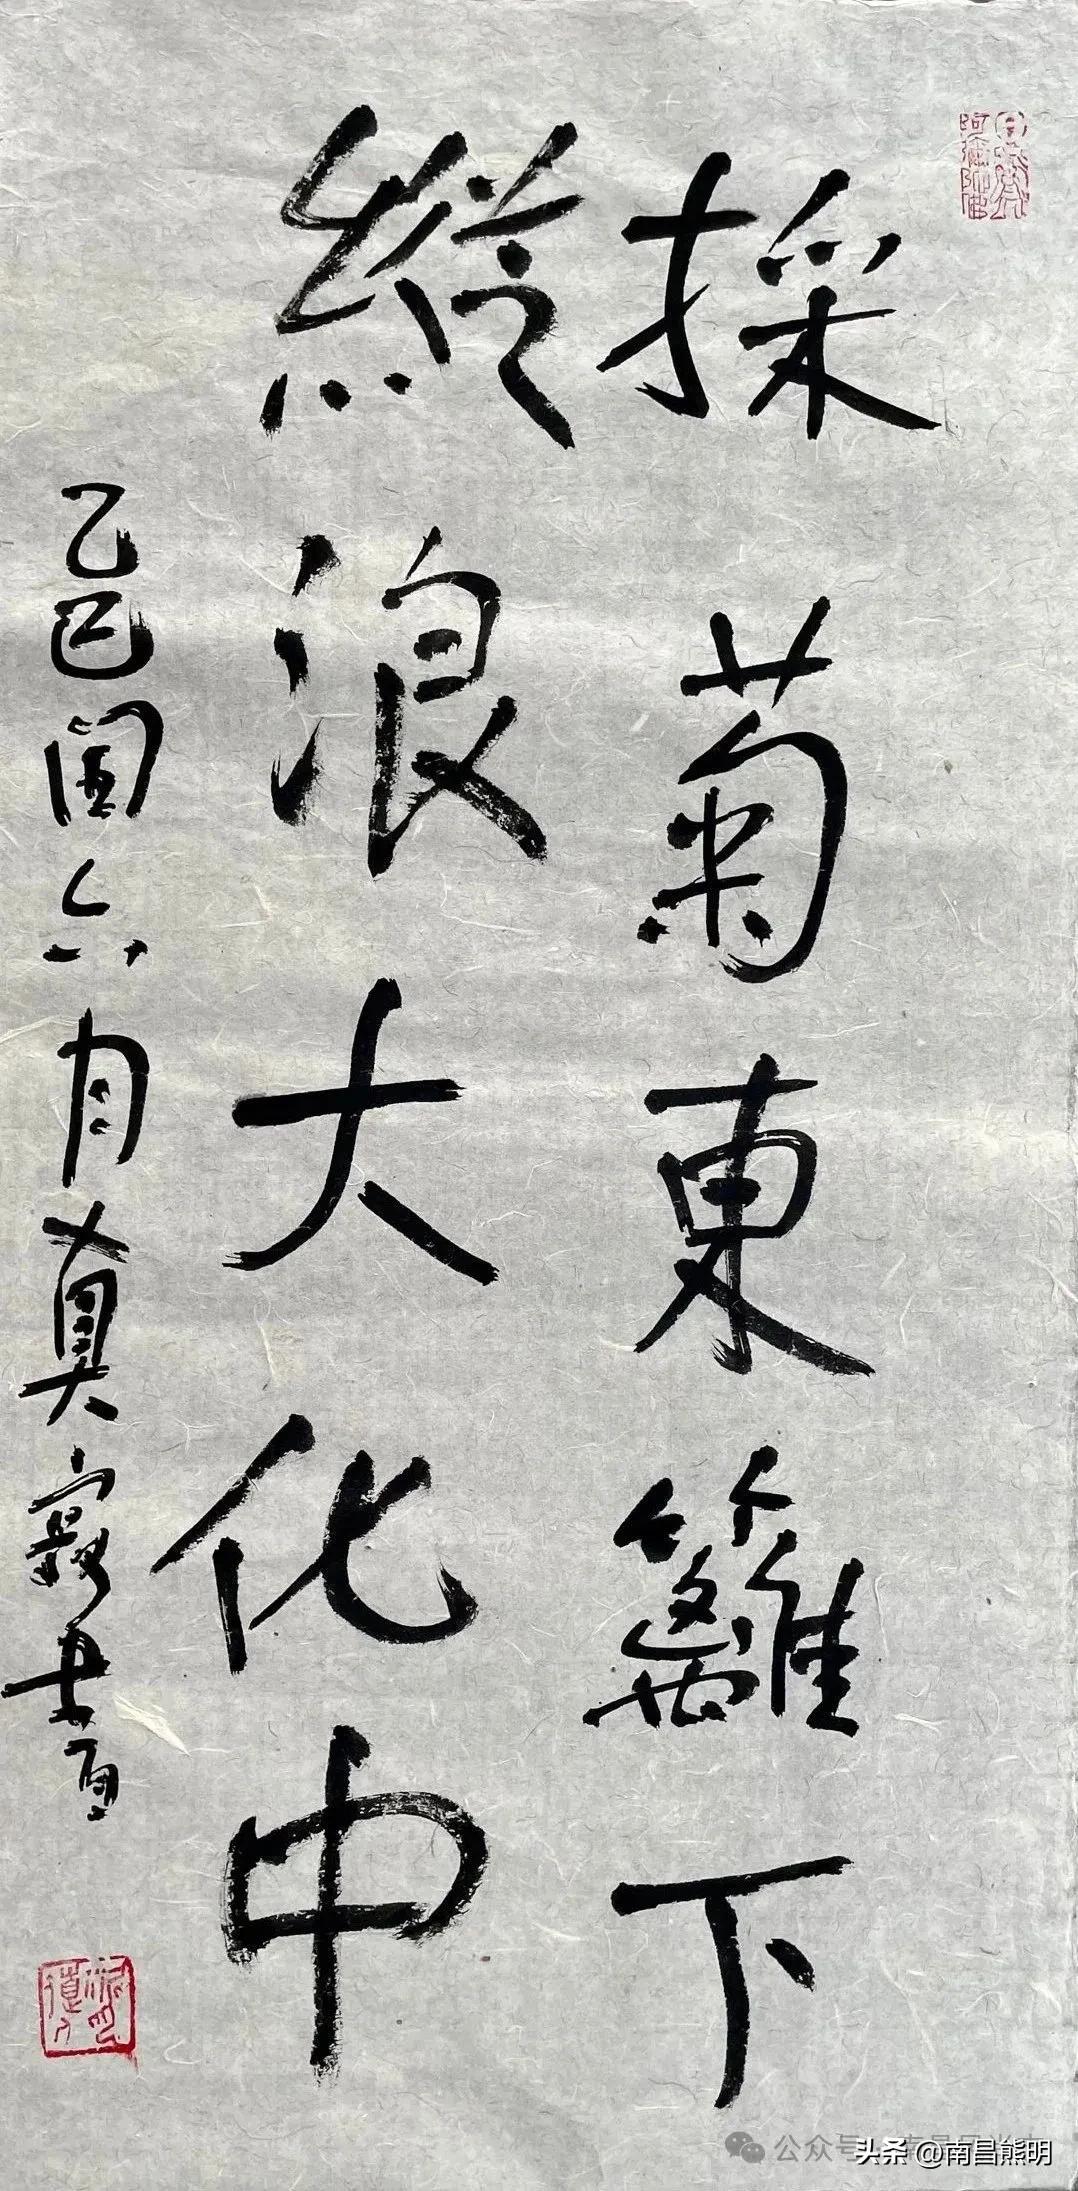 採菊東籬下
縱浪大化中
乙巳閏六月真寂書
阿彌陀佛
公众号
头条 @南昌熊明